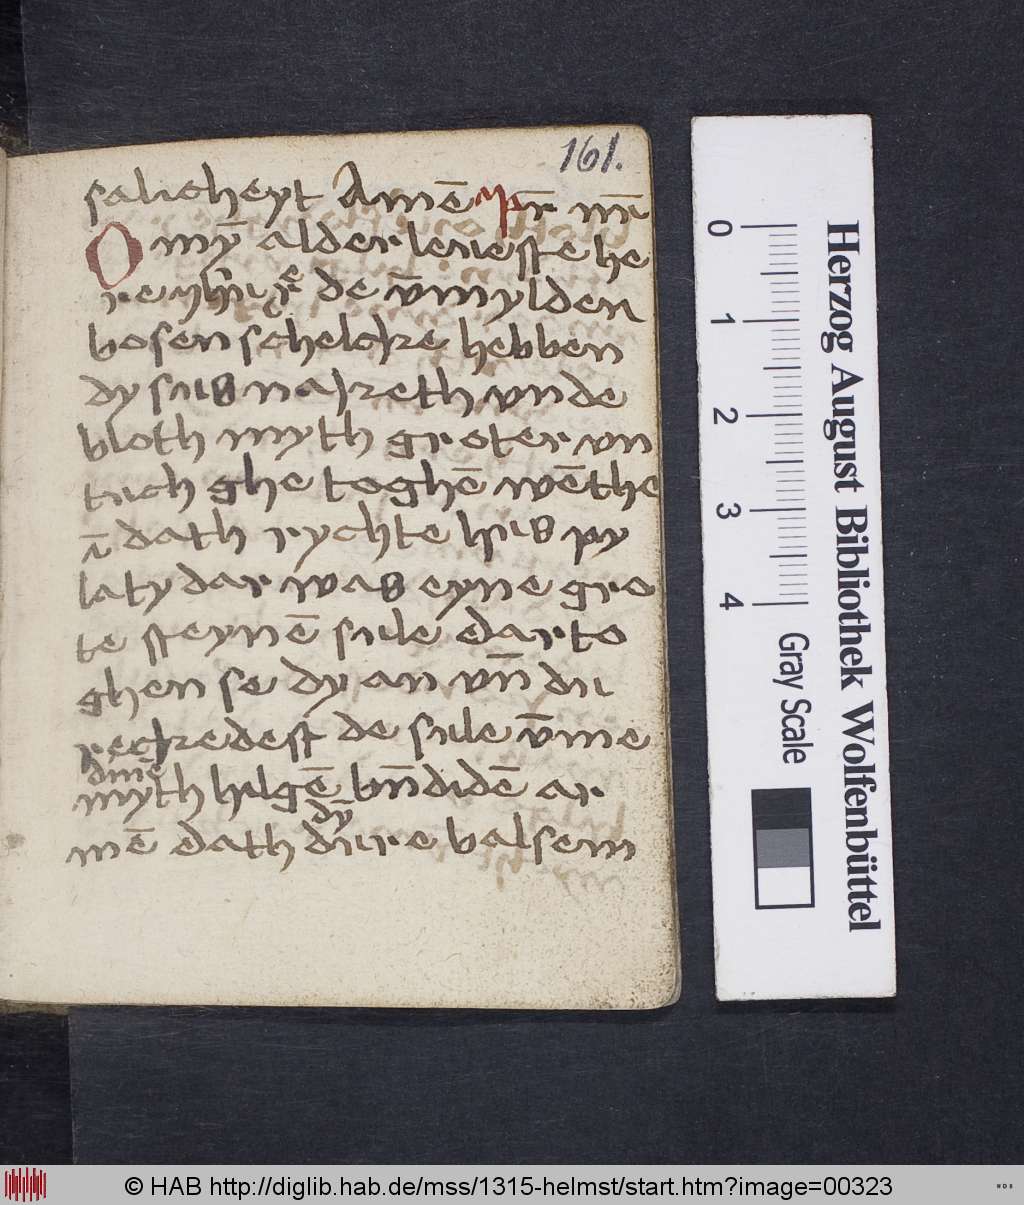 161.
salicheyt Amē pr̄ nr̄
O mȳ alderleueste he
re ihū xr̄e de v̄mylden
bosen schelcke hebben
dy sus naket vnde
bloth myth groter vn
tuch ghe toghē wēthe
ī dath rychte hus py
laty dar was eyne gro
te steynē sule dar to
ghen se dy an vn̄ du
reckedest de sule v̄me
dinē
myth hilgē bn̄didē ar
dȳ
mē dath dure balsem
Herzog August Bibliothek Wolfenbüttel
0 1 2 3 4
Gray Scale
© HAB http://diglib.hab.de/mss/1315-helmst/start.htm?image=00323